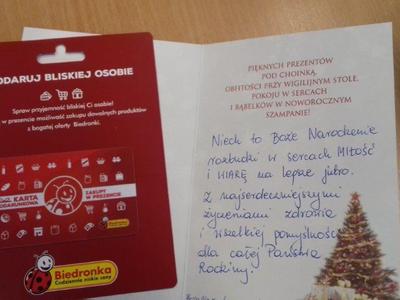 ODARUJ BLISKIEJ OSOBIE
Spraw przyjemność bliskiej Ci osobie!
w prezencie możliwość zakupu dowolnych produktów
z bogatej oferty Biedronki.
KARTA
ZAKUPY
W PREZENCIE
Biedronka
Codziennie niskie ceny
PIĘKNYCH PREZENTÓW
POD CHOINKĄ,
OBFITOŚCI PRZY WIGILIJNYM STOLE,
POKOJU W SERCACH
I BĄBELKÓW W NOWOROCZNYM
SZAMPANIE!
Niech to Boże Narodzenie
rozbudzi w sercach Miłość
i WIARĘ na lepsze jutro.
Z najserdeczniejszymi
życzeniami zdrowia
i wszelkiej pomyślności
dla całej Państwa
Rodziny.